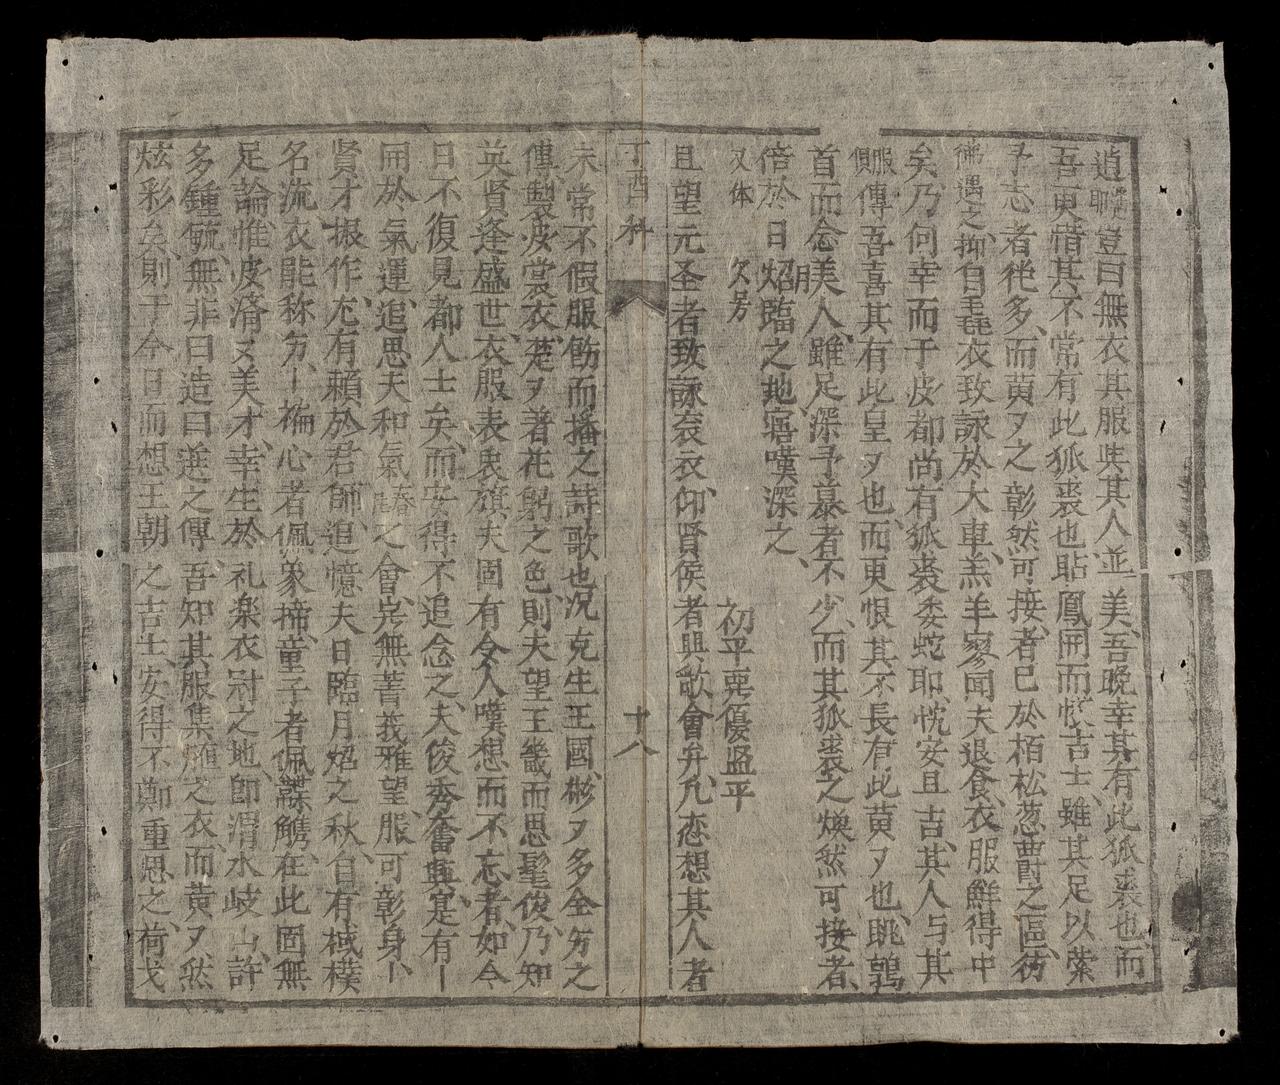 遒聯豈曰無衣其服與其人並美吾晚幸其有此狐裘也而
吾更惜其不常有此狐裘也貼鳳開而恍吉士雖其足以縈
予志者徃多而黄又之彰然可接者已於栢松葱爵之區彷
彿遇之抑自毳衣致詠於大車羔羊寥聞夫退食衣服鮮得中
矣乃何幸而于皮都尚有狐裘委蛇耶恍安且吉其人与其
服俱傳吾喜其有此皇又也而更恨其不長有此黄又也眺鶉
首而念美人雖足深予慕者不少而其狐裘之煥然可接者
倍於日月炤臨之地寤嘆深之
又体 欠芳 初平更優盗平
且望元圣者致詠衮衣仰賢侯者興歌會弁凡恋想其人者
丁酉科 十八
未常不假服飭而播之詩歌也况克生王國彬又多全才之
傳製皮裳衣楚又著花鶉之色則夫望王畿而思髦俊乃知
英賢逢盛世衣服表衷旗夫固有令人嘆想而不忘者如今
日不復見都人士矣而安得不追念之夫俊秀奮興寔有一
開於氣運追思夫和氣 之會寔無菁莪雅望服可彰身一
賢才振作尤有賴於君師追憶夫日臨月炤之秋自有棫樸
名流衣能称才一褊心者佩象揥童子者佩韘觿在此固無
足論惟皮済又美才幸生於礼楽衣冠之地即渭水岐山許
多鍾毓無非曰造曰選之傳吾知其服集 之衣而黄又然
炫彩矣則于今日而想王朝之吉士安得不鄭重思之荷戈